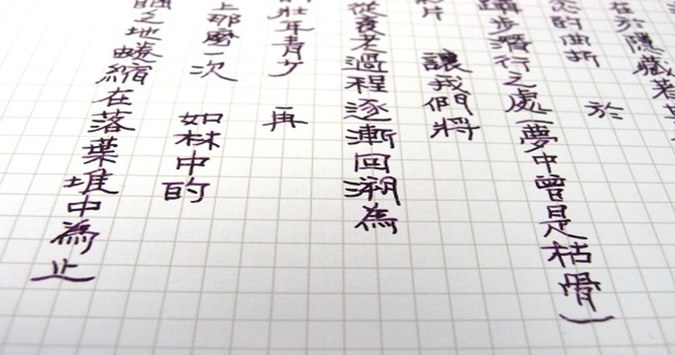 在於隱藏著
的曲折 於
步潛行之處(夢中曾是枯骨)
片 讓我們將
從衰老過程逐漸回溯為
壯年青少 再
上那麼一次 如林中的
之地蜷縮在落葉堆中為止